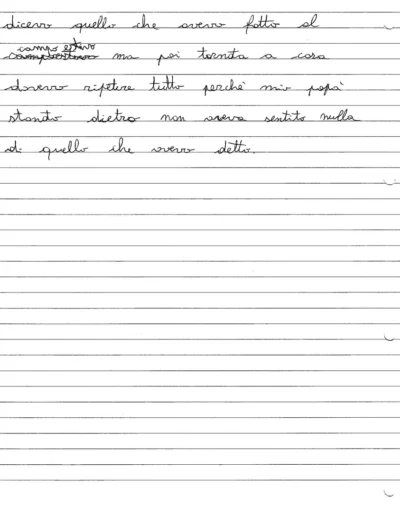 dicevo quello che avevo fatto al
campo estivo
campoestivo ma poi tornata a casa
dovevo ripetere tutto perché mio papà
stando dietro non aveva sentito nulla
di quello che avevo detto.